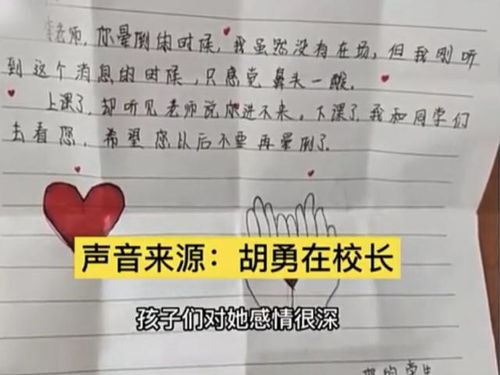 老师,你晕倒的时候,我虽然没有在场,但我刚听
到这个消息的时候,只感觉鼻头一酸。
上课了,却听见老师说您进不来。下课了,我和同学们
去看您,希望您以后不要再晕倒了。
声音来源：胡勇在校长
孩子们对她感情很深
的学生